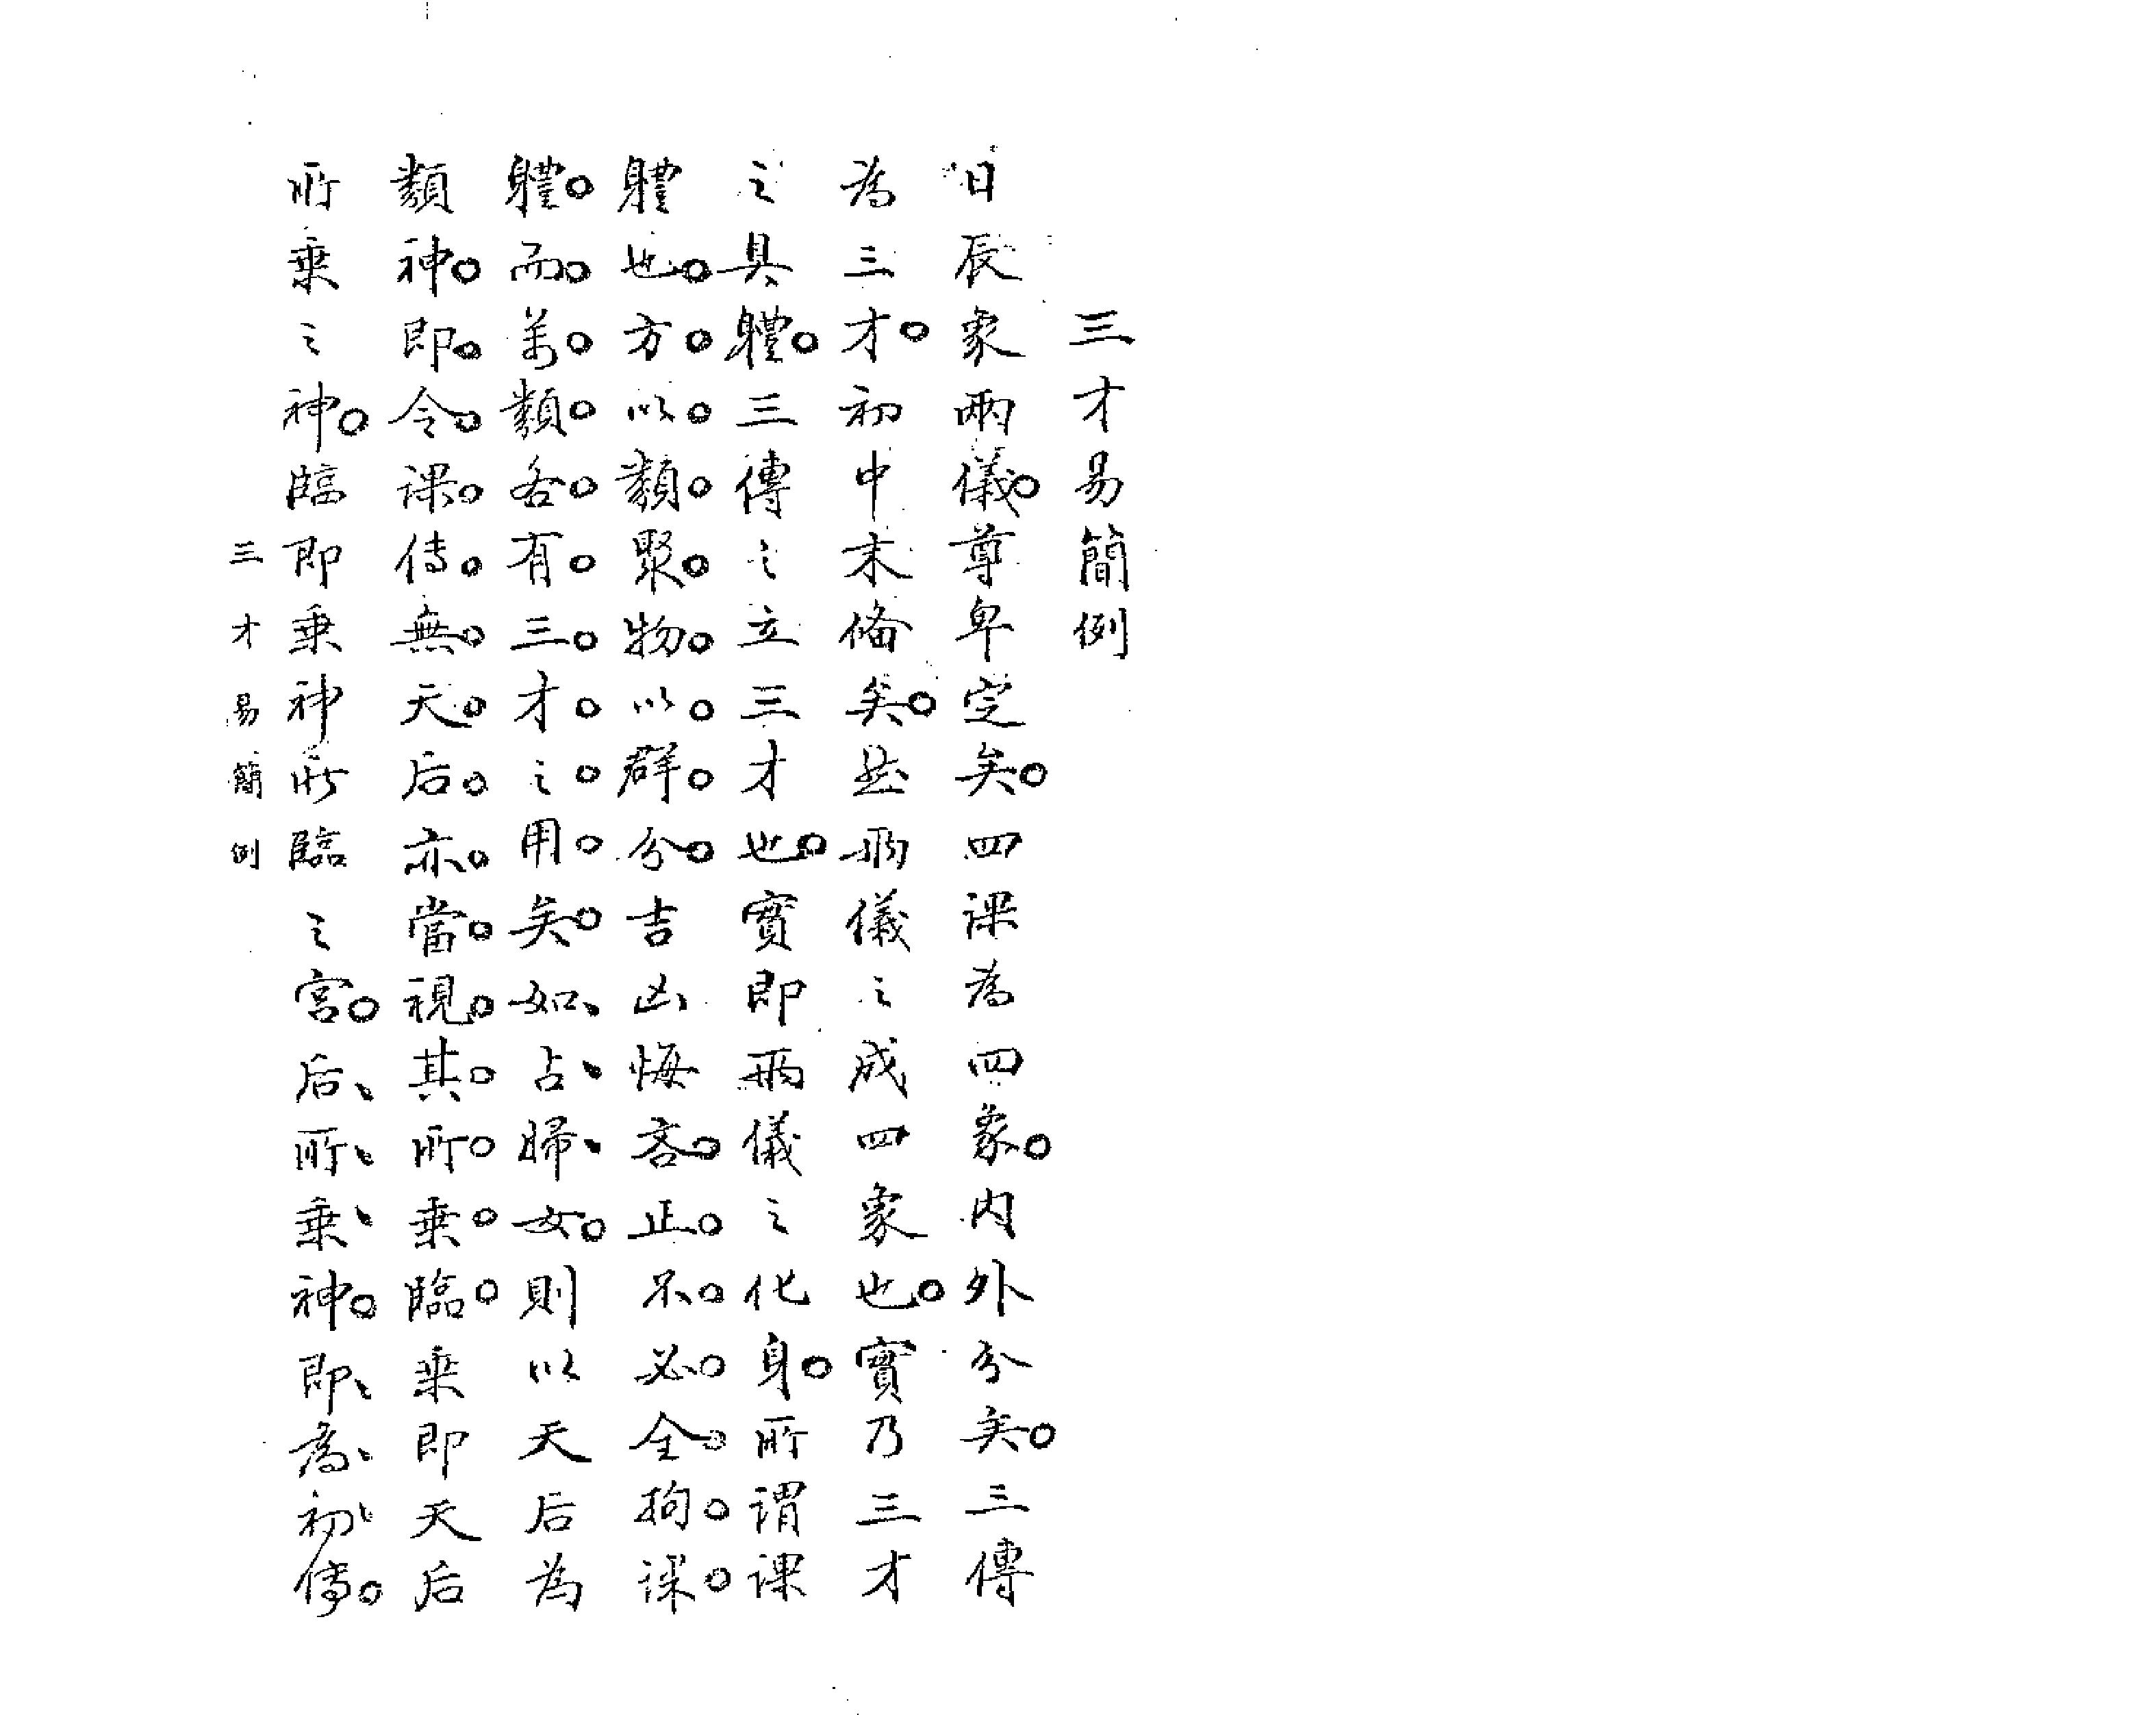 三才易簡例
日辰象兩儀尊卑定矣四課為四象內外分矣三傳
為三才初中末俻矣然兩儀之成四象也實乃三才
之具軆三傳之立三才也實即兩儀之化身所謂課
軆也方以類聚物以群分吉凶悔吝正不必全拘課
軆而萬類各有三才之用矣如占婦女則以天后為
類神即令課傳無天后亦當視其所乗臨乗即天后
所乗之神臨即乗神所臨之宮后所乗神即為初傳
三才易簡例